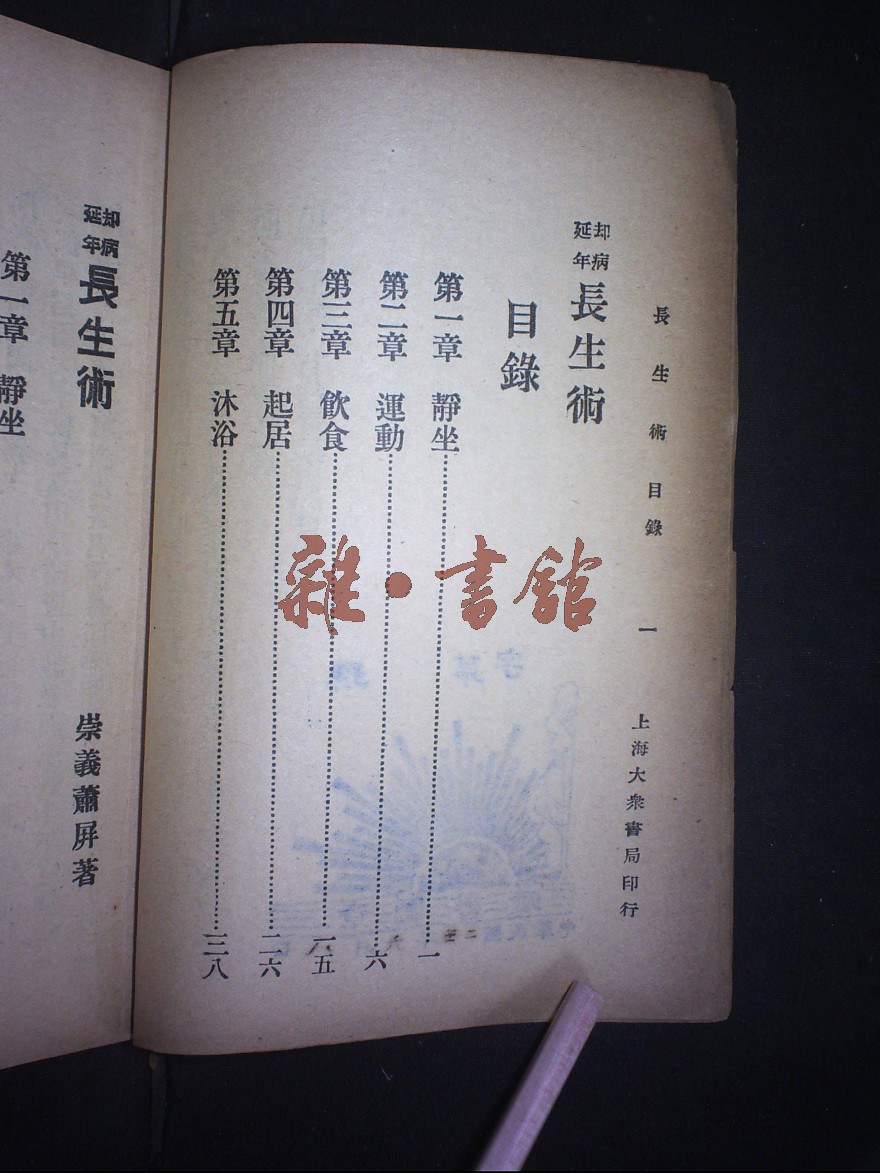 長生術目錄 一 上海大衆書局印行
却病
延年
長生術
目錄
第一章 靜坐……一
第二章 運動……六
第三章 飲食……一五
第四章 起居……二六
第五章 沐浴……三八
却病
延年
長生術
崇義蕭屏著
第一章 靜坐
雜·書館